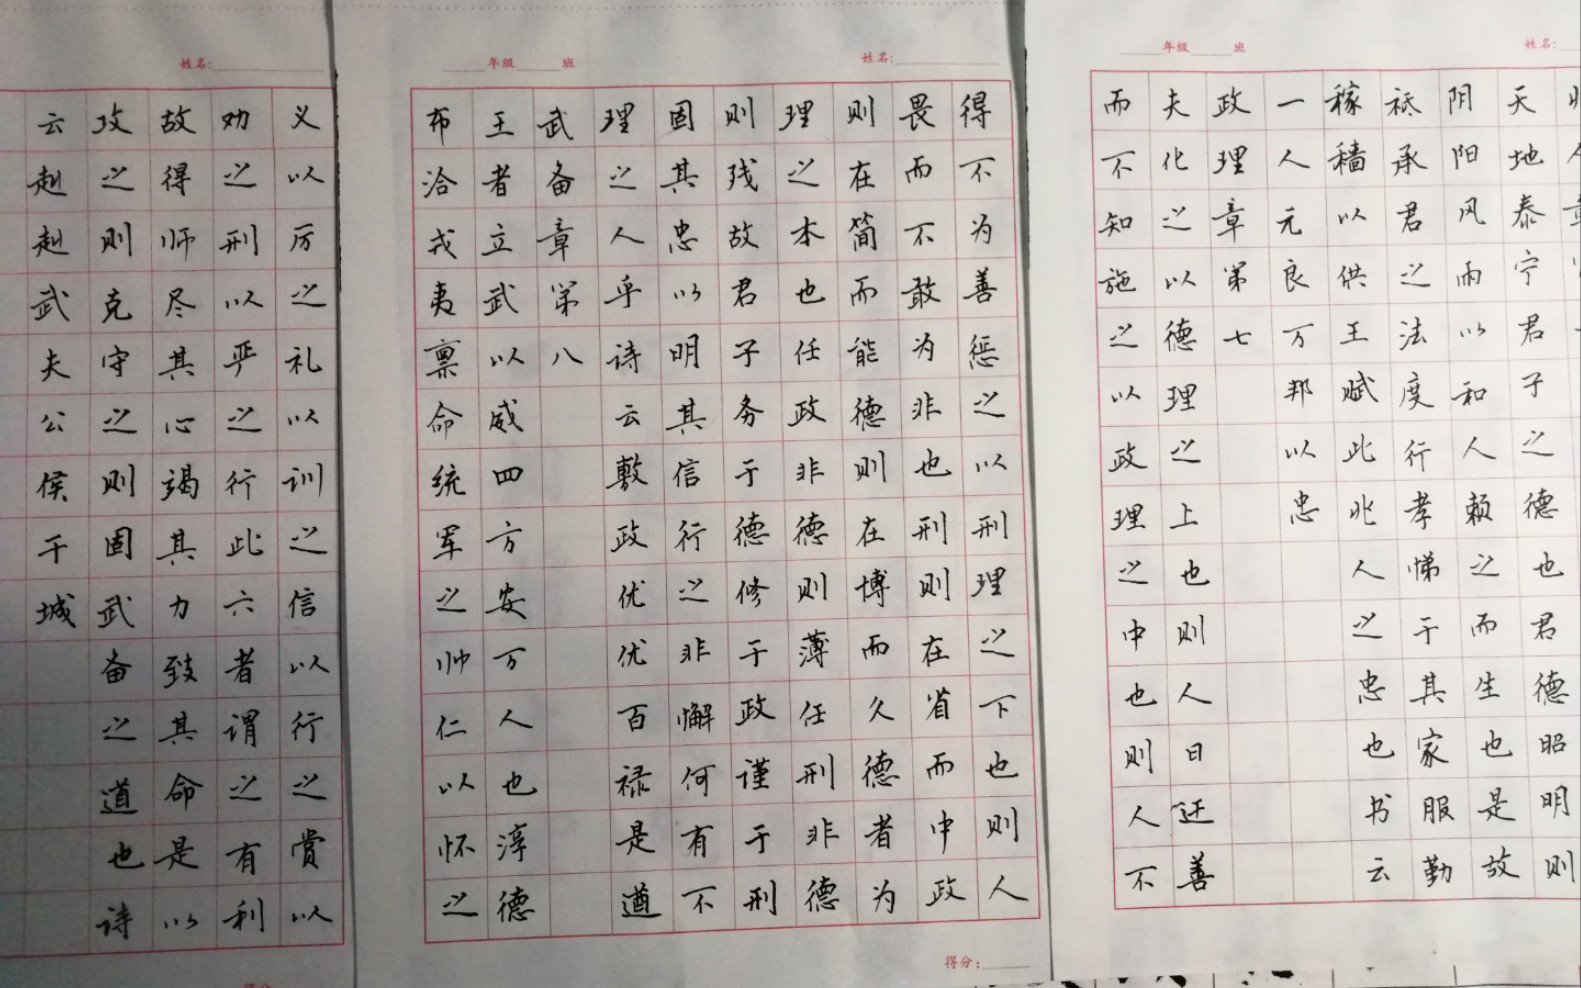 年级 班
姓名:
天地泰宁君子之德也君德昭明则
阴阳风雨以和人赖之而生也是故
祗承君之法度行孝悌于其家服勤
稼穑以供王赋此兆人之忠也书云
一人元良万邦以忠
政理章第七
夫化之以德理之上也则人日迁善
而不知施之以政理之中也则人不
年级 班
姓名:
得不为善惩之以刑理之下也则人
畏而不敢为非也刑则在省而中政
则在简而能德则在博而久德者为
理之本也任政非德则薄任刑非德
则残故君子务于德修于政谨于刑
固其忠以明其信行之非懈何有不
理之人乎诗云敷政优优百禄是遒
武备章第八
王者立武以威四方安万人也淳德
布洽戎夷禀命统军之帅仁以怀之
得分:
姓名:
义以厉之礼以训之信以行之赏以
劝之刑以严之行此六者谓之有利
故得师尽其心竭其力致其命是以
攻之则克守之则固武备之道也诗
云赳赳武夫公侯干城